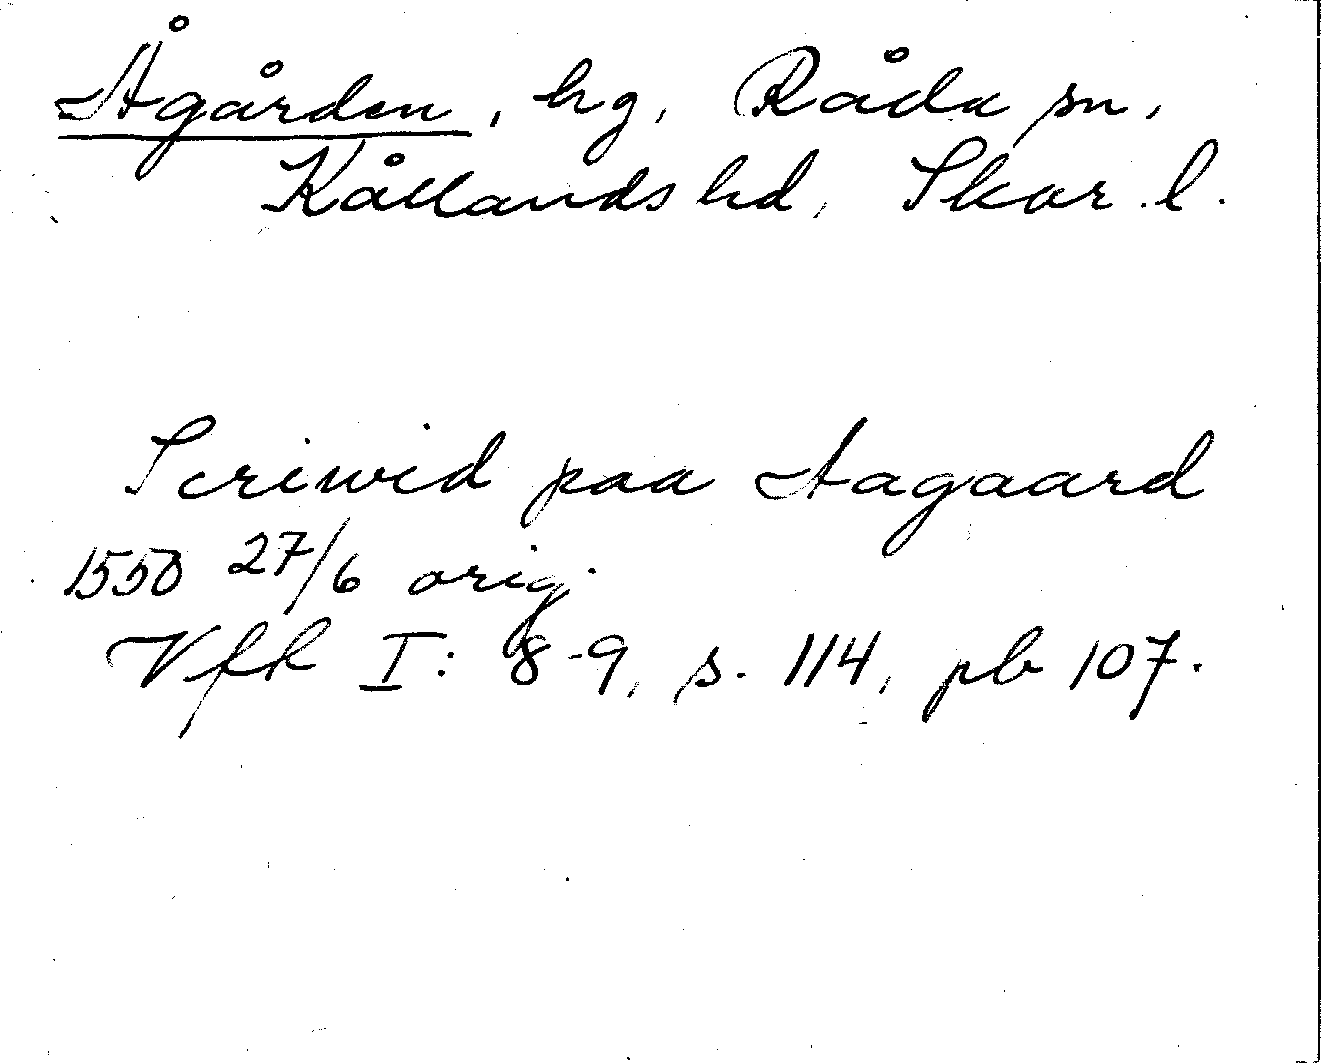 Ågården, hg, Råda sn,
Kållands hd, Skar. l.
Scriwid paa Aagaard
1550 27/6 orig.
Vfk I: 8-9, s. 114, pb 107.